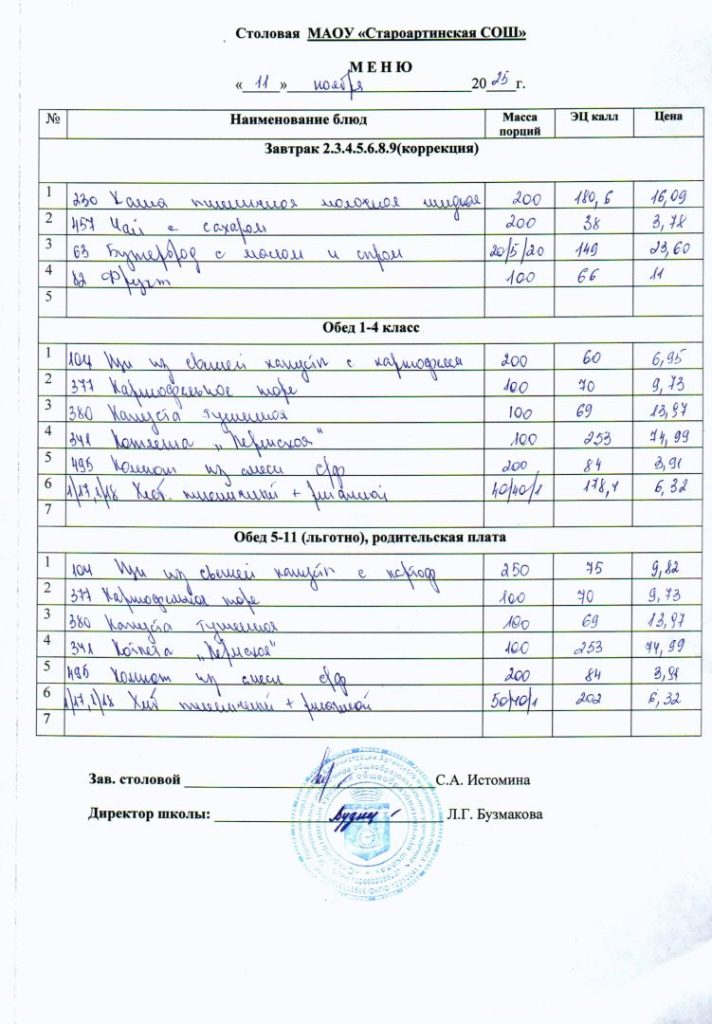 Столовая МАОУ «Староартинская СОШ»
М Е Н Ю
« 11 » ноября 20 25 г.
№ Наименование блюд Масса порций ЭЦ калл Цена
Завтрак 2.3.4.5.6.8.9(коррекция)
1 230 Каша пшеничная молочная жидкая 200 180,6 16,09
2 457 Чай с сахаром 200 38 3,78
3 63 Бутерброд с маслом и сыром 20/5/20 149 23,60
4 82 Фрукт 100 66 11
5
Обед 1-4 класс
1 104 Щи из свежей капусты с картофелем 200 60 6,95
2 377 Картофельное пюре 100 70 9,73
3 380 Капуста тушенная 100 69 13,97
4 341 Котлета „Пермская" 100 253 74,99
5 495 Компот из смеси с/ф 200 84 3,91
6 1/17,1/18 Хлеб. пшеничный + ржаной 40/40/1 178,4 6,32
7
Обед 5-11 (льготно), родительская плата
1 104 Щи из свежей капусты с картоф 250 75 9,82
2 377 Картофельное пюре 100 70 9,73
3 380 Капуста тушенная 100 69 13,97
4 341 Котлета „Пермская" 100 253 74,99
5 495 Компот из смеси с/ф 200 84 3,91
6 1/17,1/18 Хлеб пшеничный + ржаной 50/40/1 202 6,32
7
Зав. столовой С.А. Истомина
Директор школы: Л.Г. Бузмакова